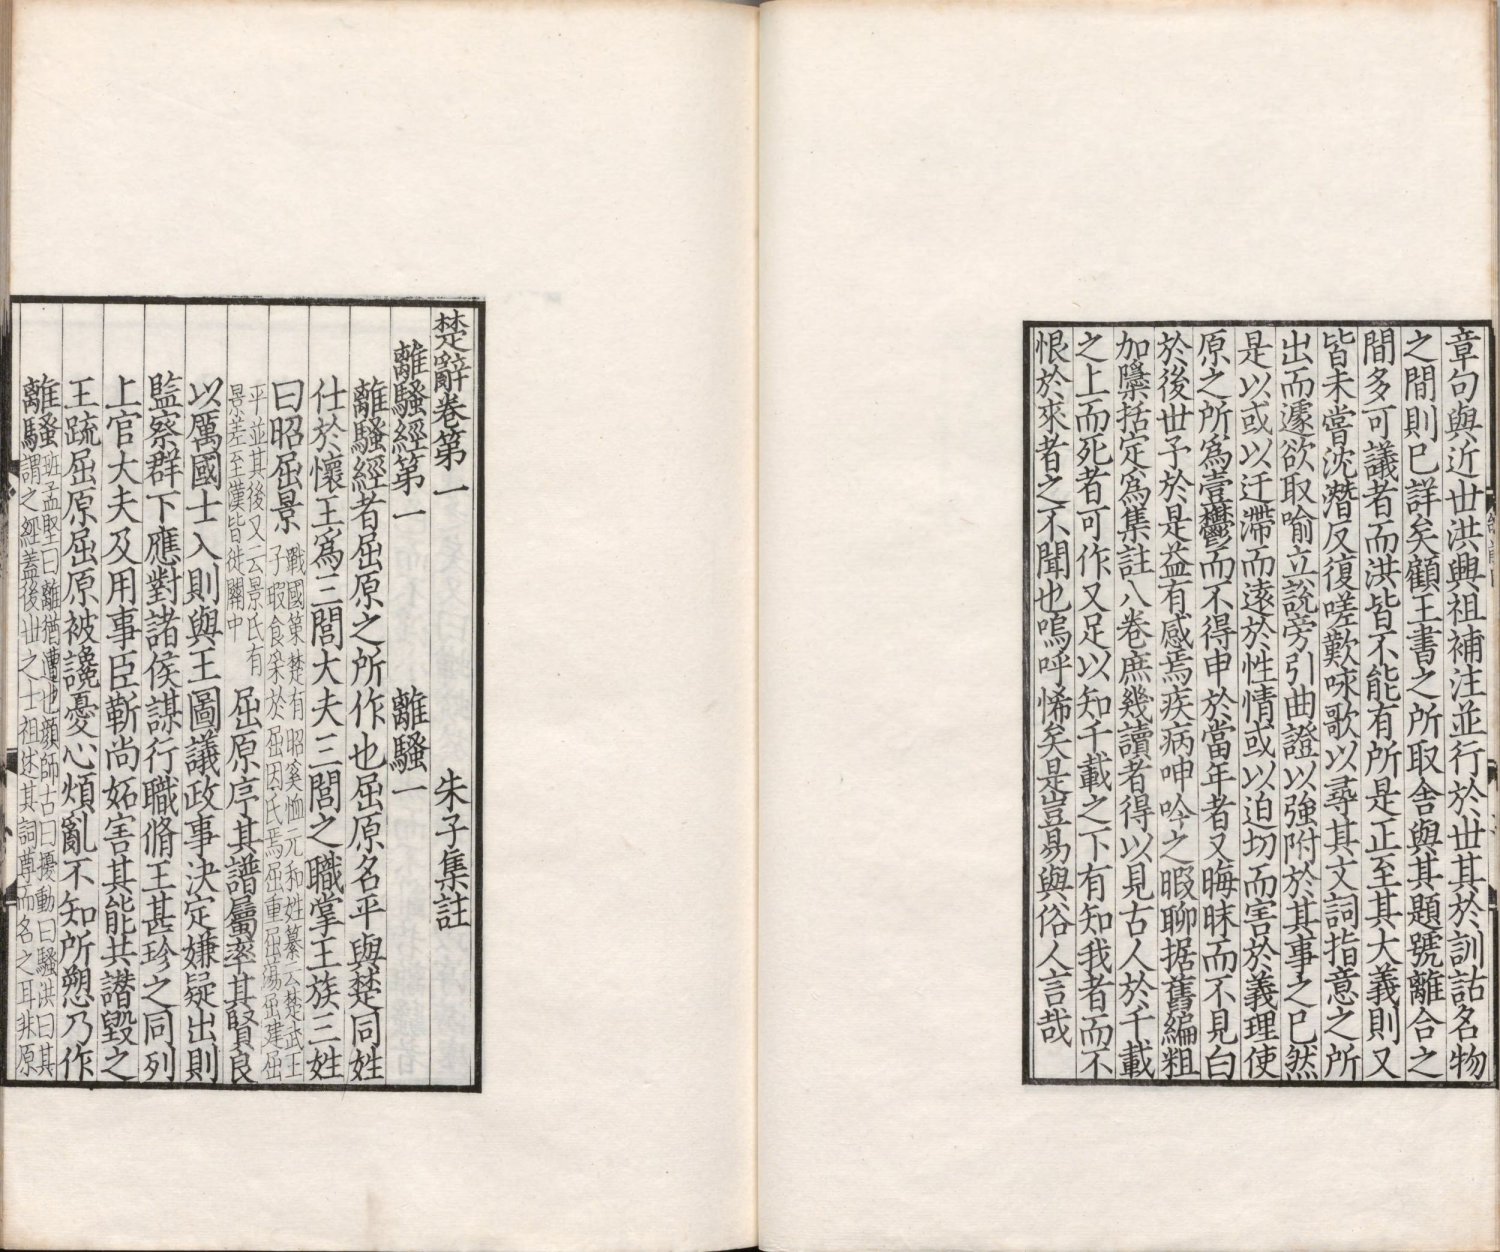 章句與近世洪興祖補注並行於世其於訓詁名物
之間則已詳矣顧王書之所取舍與其題號離合之
間多可議者而洪皆不能有所是正至其大義則又
皆未嘗沈潛反復嗟歎咏歌以尋其文詞指意之所
出而遽欲取喻立說旁引曲證以強附於其事之已然
是以或以迂滯而遠於性情或以迫切而害於義理使
原之所爲壹鬱而不得申於當年者又晦昧而不見白
於後世予於是益有感焉疾病呻吟之暇聊据舊編粗
加檃括定爲集註八卷庶幾讀者得以見古人於千載
之上而死者可作又足以知千載之下有知我者而不
恨於來者之不聞也嗚呼悕矣是豈易與俗人言哉
楚辭卷第一 朱子集註
離騷經第一 離騷一
離騷經者屈原之所作也屈原名平與楚同姓
仕於懷王爲三閭大夫三閭之職掌王族三姓
曰昭屈景
戰國策楚有昭奚恤元和姓纂云楚武王
子瑕食采於屈因氏焉屈重屈蕩屈建屈
平並其後又云景氏有
景差至漢皆徙關中
屈原序其譜屬率其賢良
以厲國士入則與王圖議政事決定嫌疑出則
監察群下應對諸侯謀行職脩王甚珍之同列
上官大夫及用事臣靳尚妬害其能共譖毀之
王疏屈原屈原被讒憂心煩亂不知所愬乃作
離騷
班孟堅曰離猶遭也顏師古曰擾動曰騷洪曰其
謂之經蓋後世之士祖述其詞尊而名之耳非原